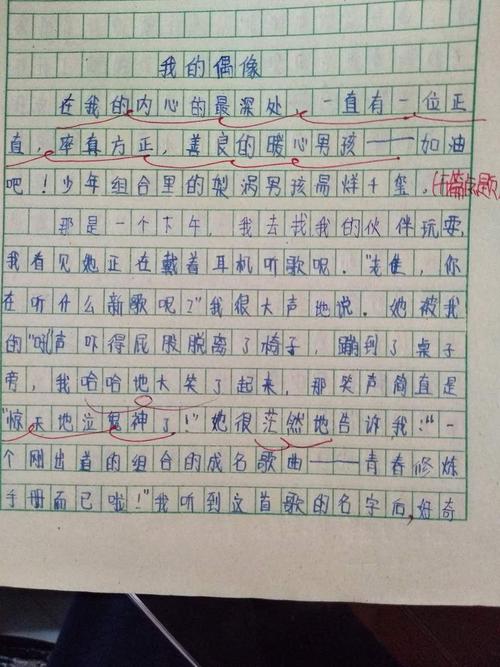 我的偶像
在我的内心的最深处,一直有一位正
直,率真方正,善良的暖心男孩——加油
吧!少年组合里的梨涡男孩易烊千玺。(开篇点题)
那是一个下午,我去找我的伙伴玩耍,
我看见她正在戴着耳机听歌呢。"佳,你
在听什么新歌呢?"我很大声地说。她被我
的"吼"声吓得屁股脱离了椅子,蹦到了桌子
旁,我哈哈地大笑了起来,那笑声简直是
"惊天地泣鬼神了!"她很茫然地告诉我:"一
个刚出道的组合的成名歌曲——青春修炼
手册而已啦!"我听到这首歌的名字后,好奇